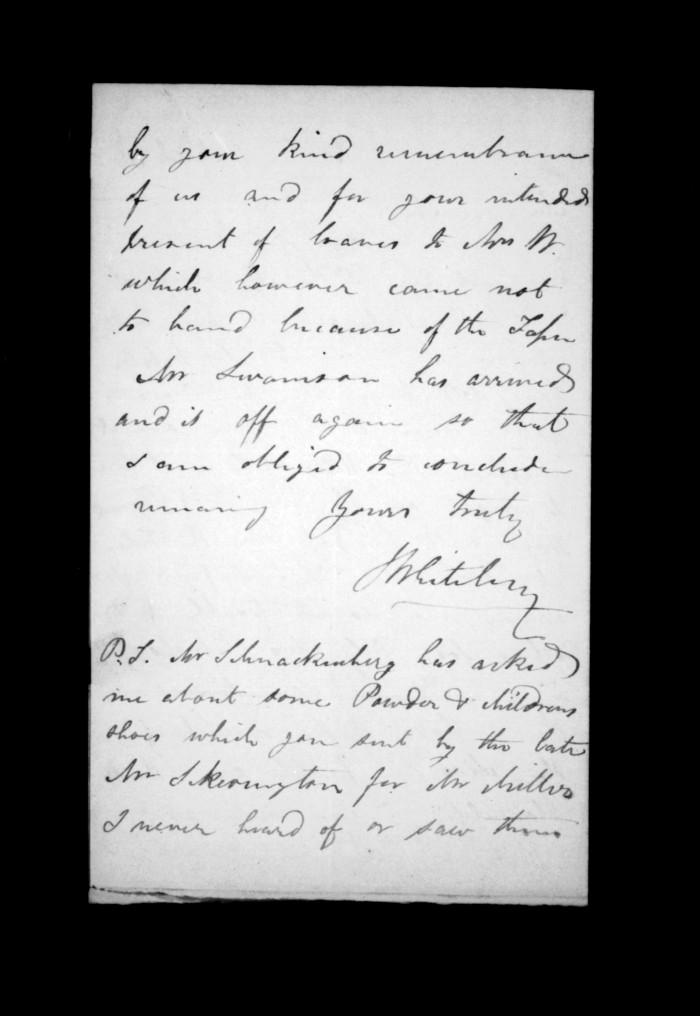 by your kind remembrance
of us and for your intended
present of loaves to Mrs W.
which however came not
to hand because of the Tapu
Mr Swainson has arrived
and is off again so that
I am obliged to conclude
remaing Yours truly
J Whiteley
P.S. Mr Schnackenberg has asked
me about some Powder & childrens
shoes which you sent by the late
Mr Skevington for Mr Miller
I never heard of or saw them